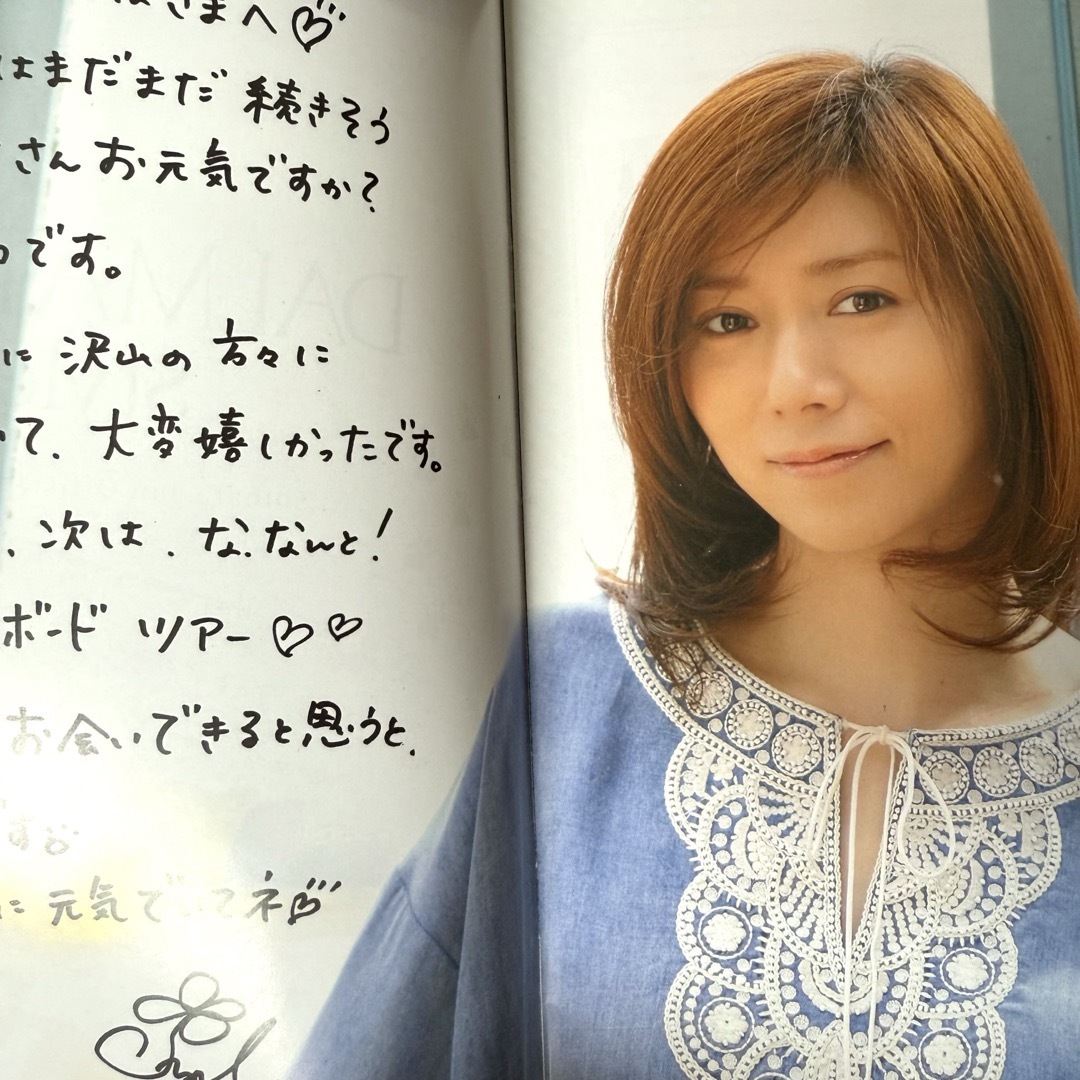 さまへ♡
はまだまだ続きそう
さんお元気ですか?
です。
に沢山の方々に
て、大変嬉しかったです。
、次は、な、なんと!
ボードツアー♡♡
お会いできると思うと、
す
に元気でいてネ♡